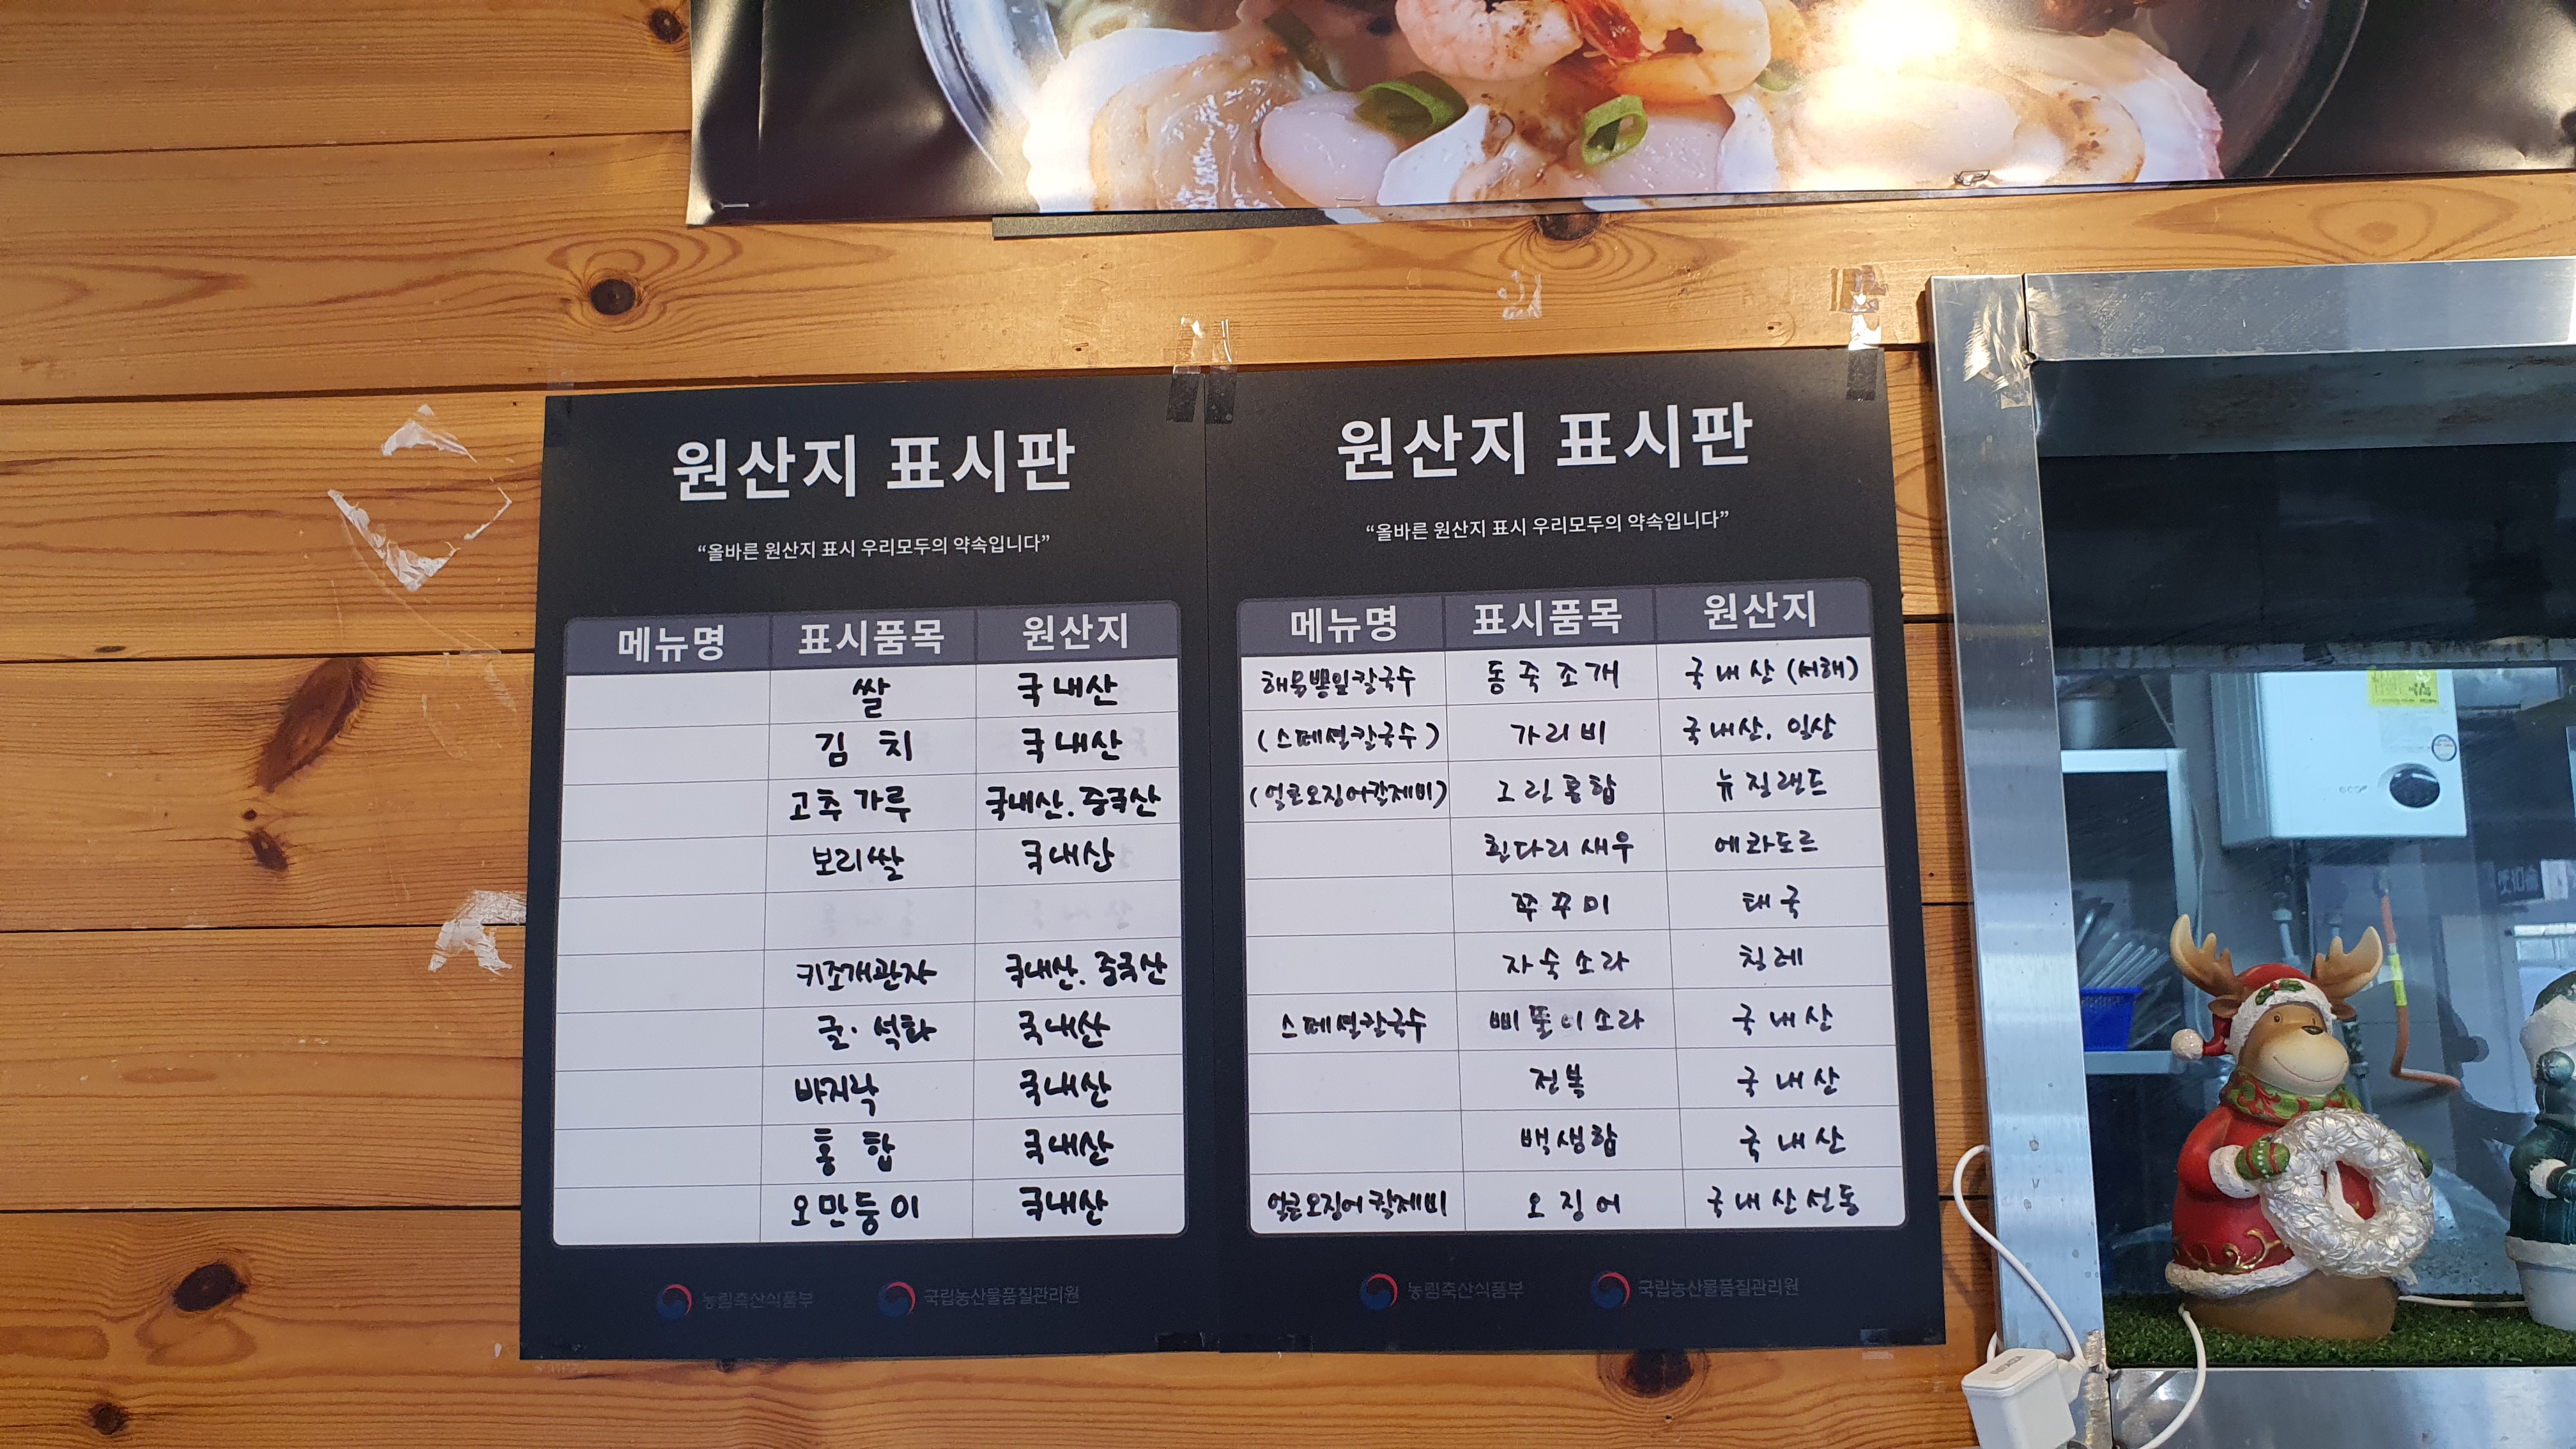 원산지 표시판
“올바른 원산지 표시 우리모두의 약속입니다”
메뉴명 표시품목 원산지
쌀 국내산
김치 국내산
고추가루 국내산. 중국산
보리쌀 국내산
키조개관자 국내산. 중국산
굴·석화 국내산
바지락 국내산
홍합 국내산
오만둥이 국내산
농림축산식품부 국립농산물품질관리원
원산지 표시판
“올바른 원산지 표시 우리모두의 약속입니다”
메뉴명 표시품목 원산지
해물뽕잎칼국수 동죽조개 국내산 (서해)
(스페셜칼국수) 가리비 국내산. 일산
(얼큰오징어칼제비) 그린홍합 뉴질랜드
흰다리새우 에콰도르
쭈꾸미 태국
자숙소라 칠레
스페셜칼국수 삐뚤이소라 국내산
전복 국내산
백생합 국내산
얼큰오징어칼제비 오징어 국내산선동
농림축산식품부 국립농산물품질관리원
eco